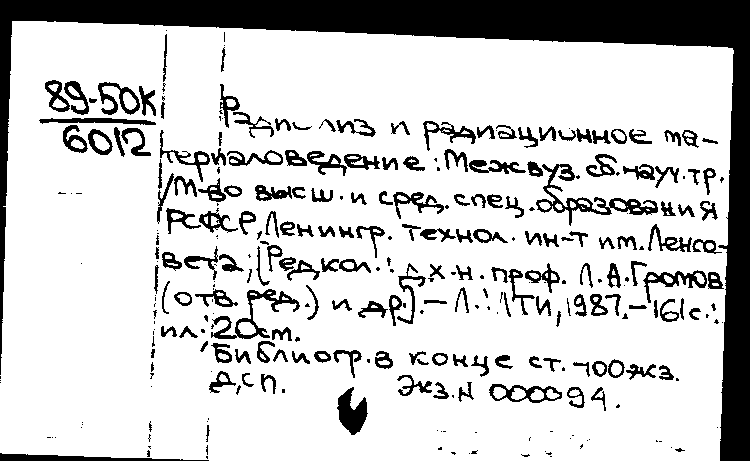 89-50К
6012
Радиолиз и радиационное ма-
териаловедение: Межвуз. сб. науч. тр.
/М-во высш. и сред. спец. образования
РСФСР, Ленингр. технол. ин-т им. Ленсо-
вета; [Редкол.: д.х.н. проф. Л.А. Громов
(отв. ред.) и др.]. – Л.: ЛТИ, 1987. – 161с.:
ил; 20см.
Библиогр. в конце ст. – 100 экз.
Д,СП. Экз. N 000094.